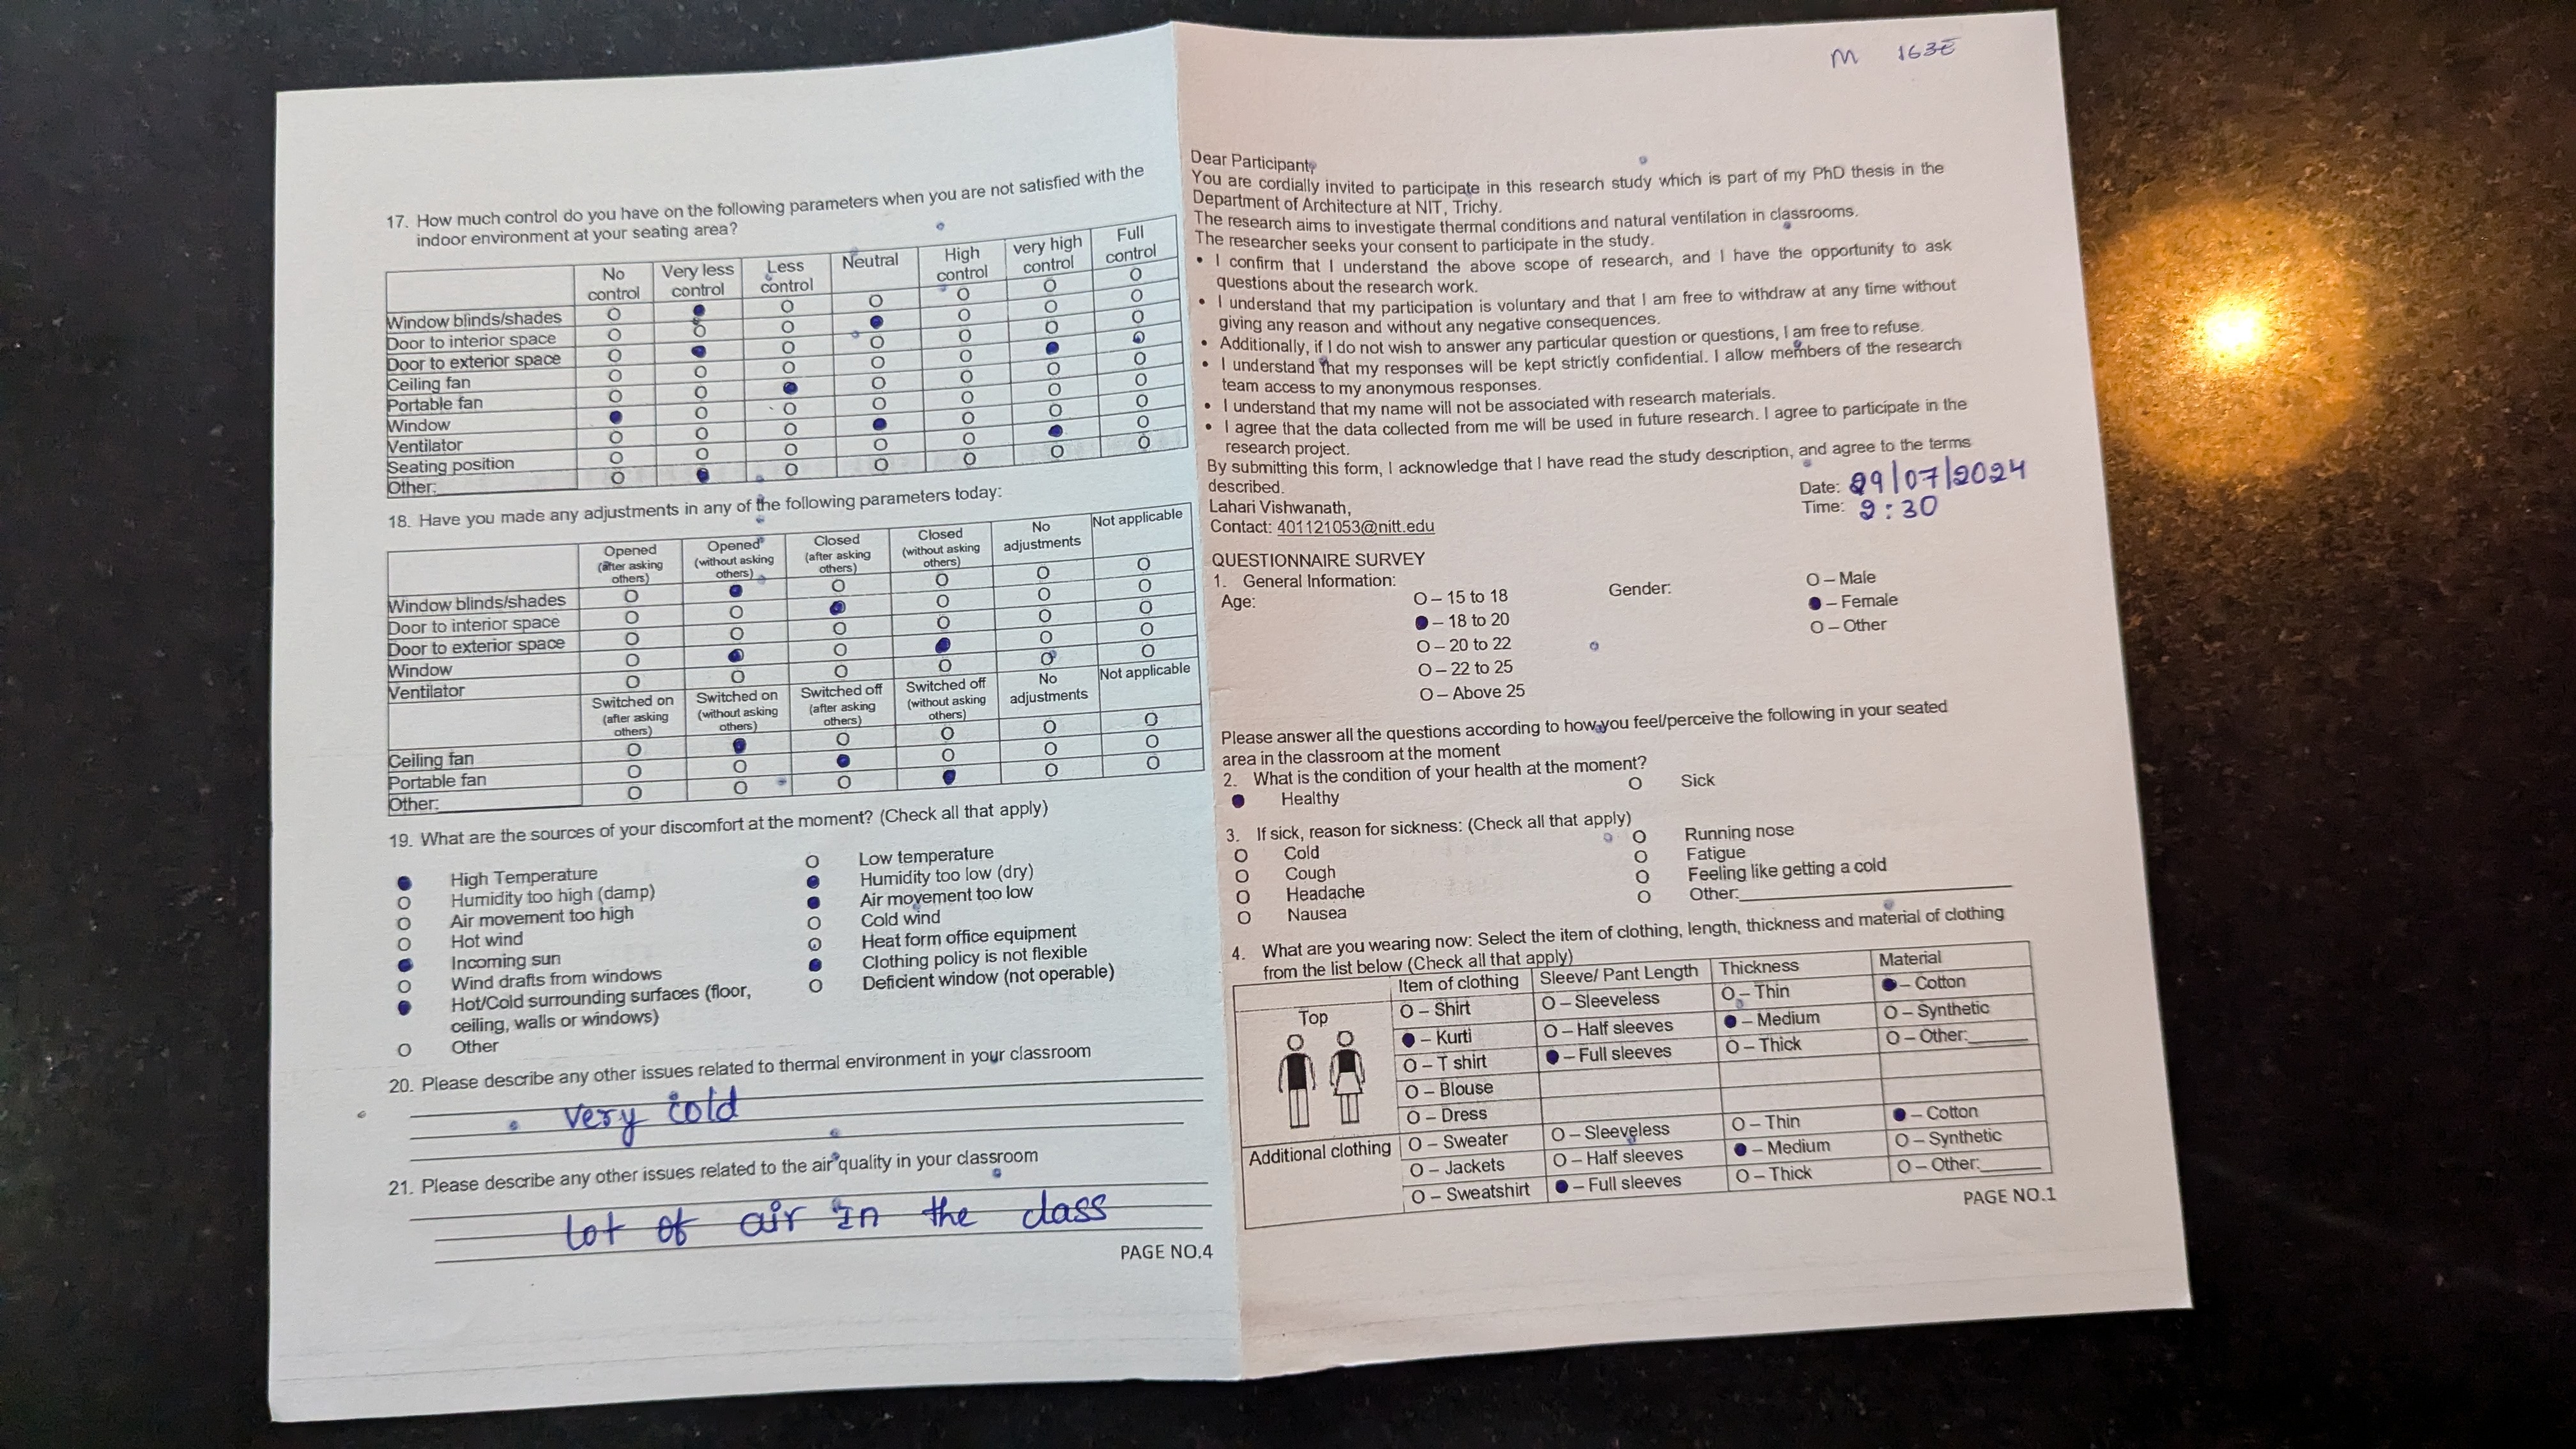 17. How much control do you have on the following parameters when you are not satisfied with the
indoor environment at your seating area?
No control Very less control Less control Neutral High control very high control Full control
Window blinds/shades O ● O O O O O
Door to interior space O O O ● O O O
Door to exterior space O ● O O O O O
Ceiling fan O O O O O ● O
Portable fan O O ● O O O O
Window ● O O O O O O
Ventilator O O O ● O O O
Seating position O O O O O ● O
Other: O ● O O O O O
18. Have you made any adjustments in any of the following parameters today:
Opened (after asking others) Opened (without asking others) Closed (after asking others) Closed (without asking others) No adjustments Not applicable
Window blinds/shades O ● O O O O
Door to interior space O O ● O O O
Door to exterior space O O O O O O
Window O ● O ● O O
Ventilator O O O O O O
Switched on (after asking others) Switched on (without asking others) Switched off (after asking others) Switched off (without asking others) No adjustments Not applicable
Ceiling fan O ● O O O O
Portable fan O O ● O O O
Other: O O O ● O O
19. What are the sources of your discomfort at the moment? (Check all that apply)
● High Temperature O Low temperature
O Humidity too high (damp) ● Humidity too low (dry)
O Air movement too high ● Air movement too low
O Hot wind O Cold wind
● Incoming sun O Heat form office equipment
O Wind drafts from windows ● Clothing policy is not flexible
● Hot/Cold surrounding surfaces (floor, O Deficient window (not operable)
ceiling, walls or windows)
O Other
20. Please describe any other issues related to thermal environment in your classroom
very cold
21. Please describe any other issues related to the air quality in your classroom
lot of air in the class
PAGE NO.4
M
Dear Participant,
You are cordially invited to participate in this research study which is part of my PhD thesis in the
Department of Architecture at NIT, Trichy.
The research aims to investigate thermal conditions and natural ventilation in classrooms.
The researcher seeks your consent to participate in the study.
• I confirm that I understand the above scope of research, and I have the opportunity to ask
questions about the research work.
• I understand that my participation is voluntary and that I am free to withdraw at any time without
giving any reason and without any negative consequences.
• Additionally, if I do not wish to answer any particular question or questions, I am free to refuse.
• I understand that my responses will be kept strictly confidential. I allow members of the research
team access to my anonymous responses.
• I understand that my name will not be associated with research materials.
• I agree that the data collected from me will be used in future research. I agree to participate in the
research project.
By submitting this form, I acknowledge that I have read the study description, and agree to the terms
described.
Lahari Vishwanath,
Contact: 401121053@nitt.edu
Date: 29/07/2024
Time: 9:30
QUESTIONNAIRE SURVEY
1. General Information:
Age: O – 15 to 18 Gender: O – Male
● – 18 to 20 ● – Female
O – 20 to 22 O – Other
O – 22 to 25
O – Above 25
Please answer all the questions according to how you feel/perceive the following in your seated
area in the classroom at the moment
2. What is the condition of your health at the moment?
● Healthy O Sick
3. If sick, reason for sickness: (Check all that apply)
O Cold O Running nose
O Cough O Fatigue
O Headache O Feeling like getting a cold
O Nausea O Other:
4. What are you wearing now: Select the item of clothing, length, thickness and material of clothing
from the list below (Check all that apply)
Item of clothing Sleeve/ Pant Length Thickness Material
Top O – Shirt O – Sleeveless O – Thin ● – Cotton
● – Kurti O – Half sleeves ● – Medium O – Synthetic
O – T shirt ● – Full sleeves O – Thick O – Other:
O – Blouse
O – Dress
Additional clothing O – Sweater O – Sleeveless O – Thin ● – Cotton
O – Jackets O – Half sleeves ● – Medium O – Synthetic
O – Sweatshirt ● – Full sleeves O – Thick O – Other:
PAGE NO.1